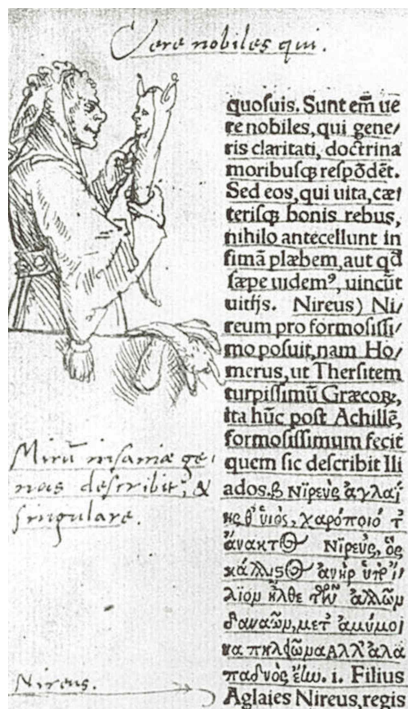 Vere nobiles qui.
quosuis. Sunt em̃ ue
re nobiles, qui gene/
ris claritati, doctrina
moribusq; respõdẽt.
Sed eos, qui uita, cæ/
terisq; bonis rebus,
nihilo antecellunt in
fimã plæbem, aut qđ
sæpe uidemꝰ, uincũt
uitĳs. Nireus) Ni/
reum pro formosissi/
mo posuit, nam Ho/
merus, ut Thersitem
turpissimũ Græcoꝝ,
ita hũc post Achillẽ,
formosissimum fecit
quem sic describit Ili
ados.β Νιρεὺς ἀγλαΐ
ης θ᾽ ὑιὸς, χαρόποιό τ᾽
ἄνακτος Νιρεὺς, ὃς
κάλλιςος ἀνὴρ ὑπ᾽ ἴ/
λιον ἦλθε τῶν ἄλλων
δαναῶν, μετ᾽ ἀμύμο
να πηλείωνα Αλλ᾽ ἀλα
παδνὸς ἔην. i. Filius
Aglaies Nireus, regis
Mirũ insaniæ ge/
nus describit, &
singulare.
Nireus.